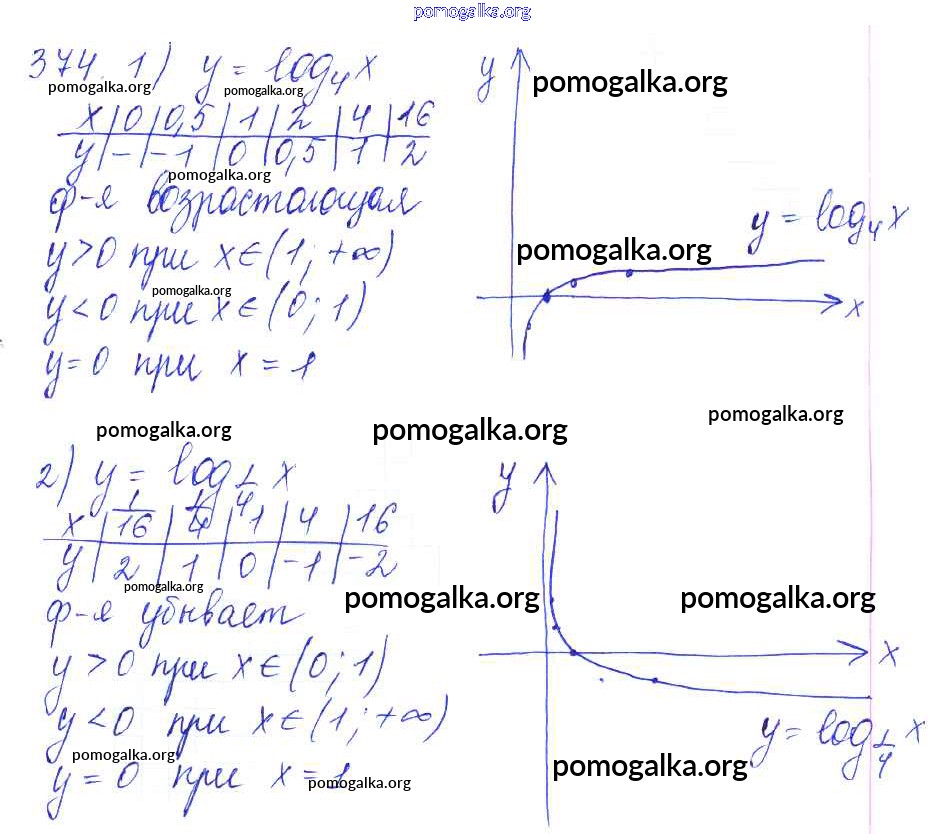 pomogalka.org
374. 1) y = log₄x
pomogalka.org pomogalka.org
x | 0 | 0,5 | 1 | 2 | 4 | 16
y | – | –1 | 0 | 0,5 | 1 | 2
pomogalka.org
ф-я возрастающая
y>0 при x∈(1; +∞)
pomogalka.org
y<0 при x∈(0; 1)
y=0 при x = 1
y
pomogalka.org
y = log₄x
pomogalka.org
x
pomogalka.org pomogalka.org pomogalka.org
2) y = log_{1/4} x
x | 1/16 | 1/4 | 1 | 4 | 16
y | 2 | 1 | 0 | –1 | –2
pomogalka.org
ф-я убывает
y > 0 при x∈(0; 1)
y < 0 при x∈(1; +∞)
pomogalka.org
y = 0 при x = 1
pomogalka.org
y
pomogalka.org pomogalka.org
x
y = log_{1/4} x
pomogalka.org